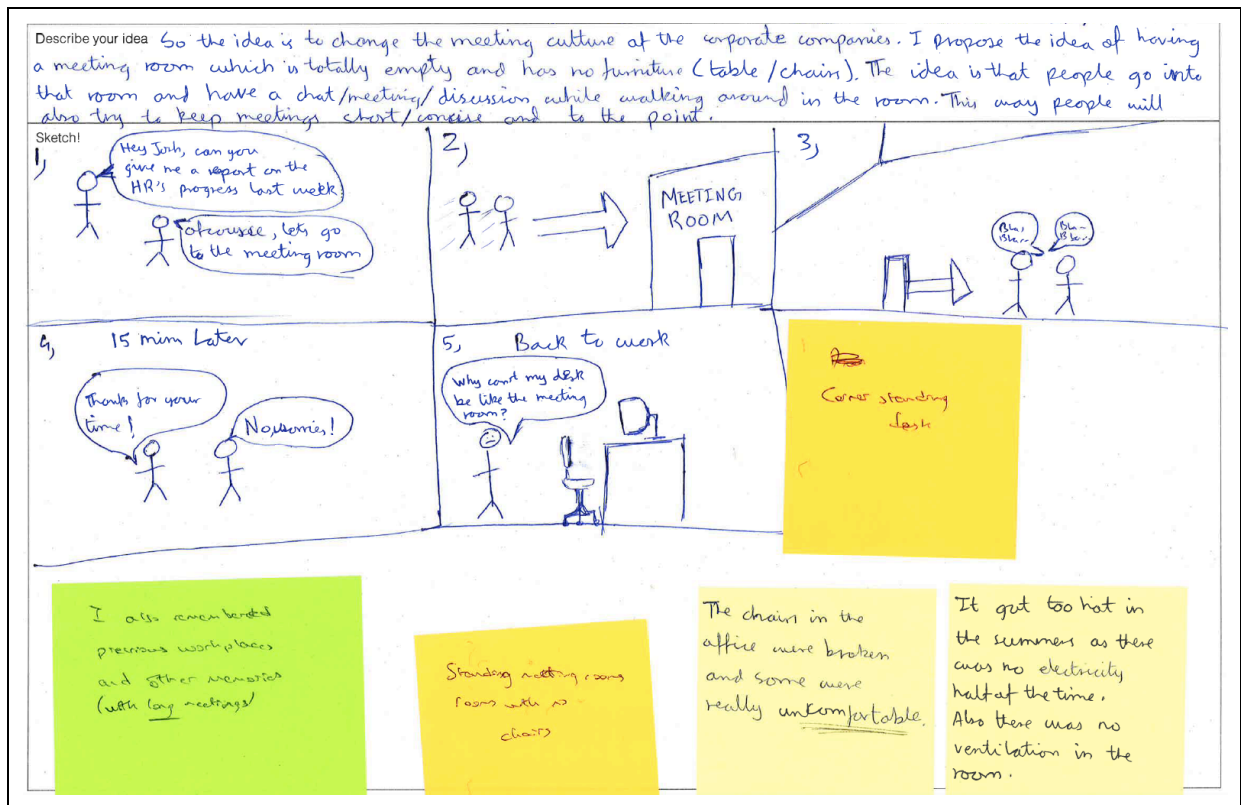 Describe your idea So the idea is to change the meeting culture of the corporate companies. I propose the idea of having
a meeting room which is totally empty and has no furniture (table/chairs). The idea is that people go into
that room and have a chat/meeting/discussion while walking around in the room. This way people will
also try to keep meetings short/concise and to the point.
Sketch!
1,
Hey Josh, can you
give me a report on the
HR's progress last week
ofcourse, lets go
to the meeting room
2,
MEETING
ROOM
3,
Bla,
Bla..
Bla-
Bla..
4, 15 min Later
Thanks for your
time!
No,worries!
5, Back to work
Why cant my desk
be like the meeting
room?
Corner standing
desk
I also remembered
previous workplaces
and other memories
(with long meetings)
Standing meeting rooms
rooms with no
chairs
The chairs in the
office were broken
and some were
really uncomfortable.
It got too hot in
the summers as there
was no electricity
half of the time.
Also there was no
ventilation in the
room.